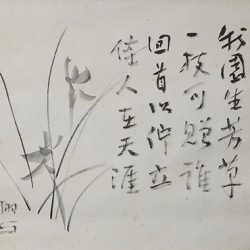 我園生芳草
一枝可贈誰
回首以佇立
佳人在天涯